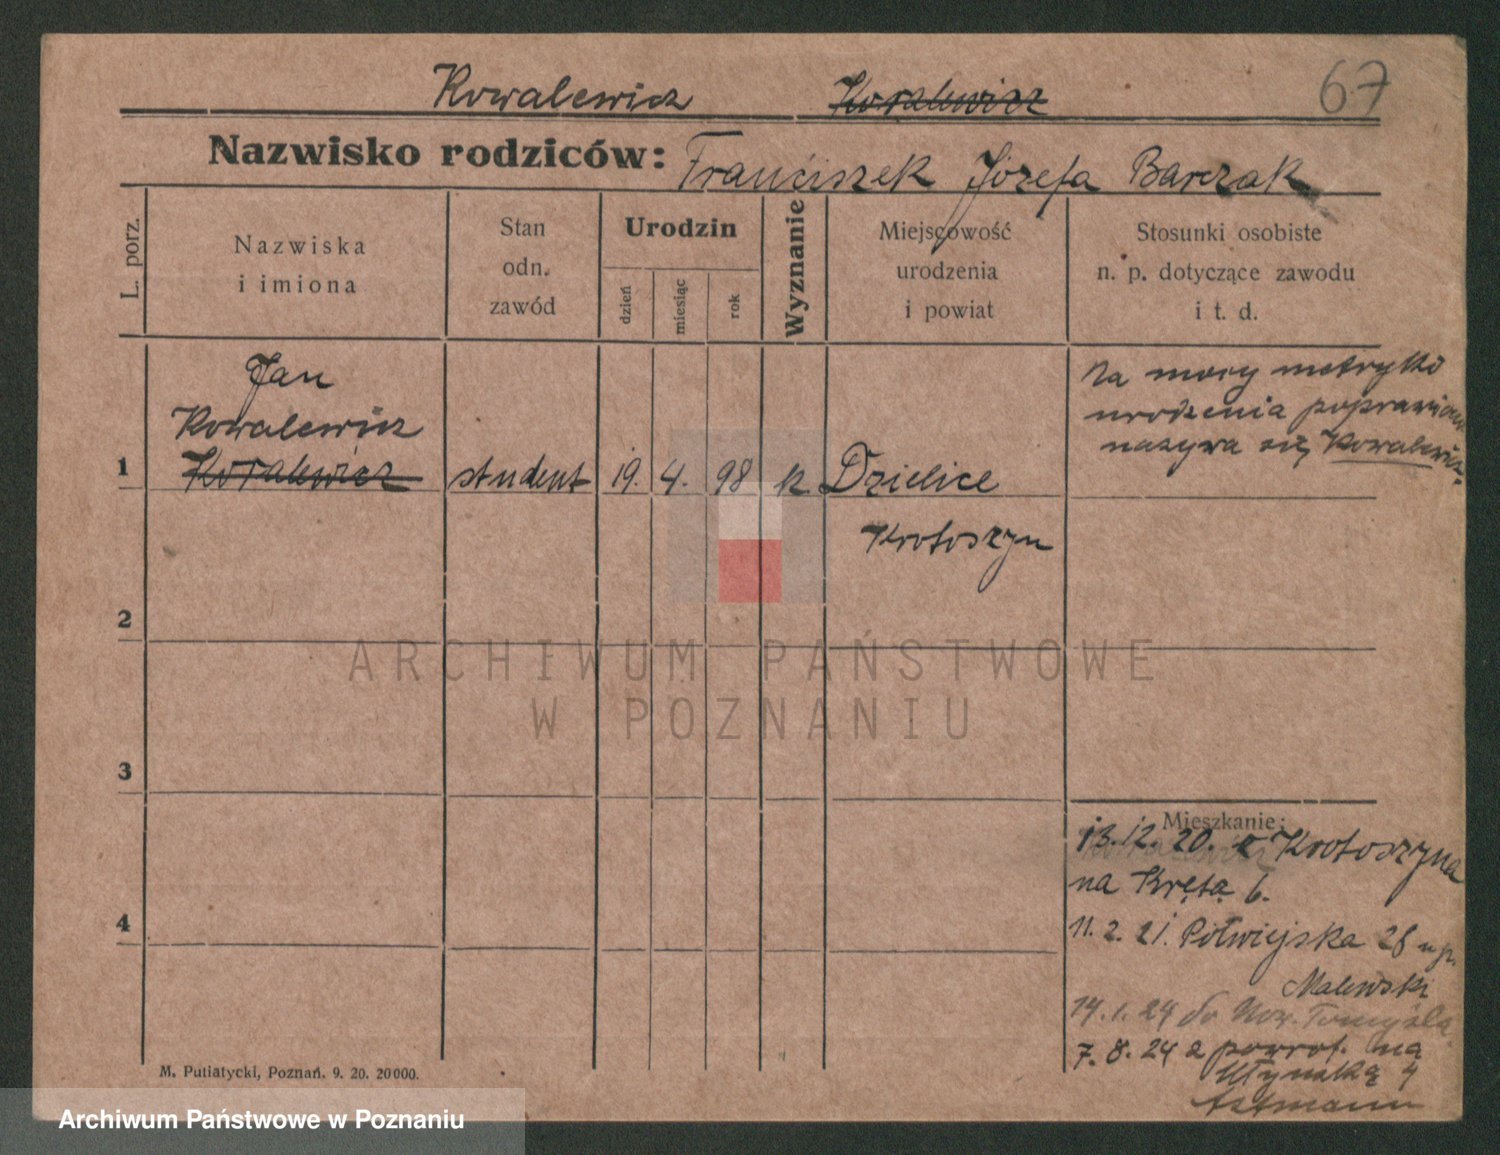 Kowalewicz Koralewicz 67
Nazwisko rodziców: Franciszek Józefa Barczak
L. porz.
Nazwiska
i imiona
Stan
odn.
zawód
Urodzin
dzień
miesiąc
rok
Wyznanie
Miejscowość
urodzenia
i powiat
Stosunki osobiste
n. p. dotyczące zawodu
i t. d.
Jan
Kowalewicz
1 Koralewicz student 19. 4. 98 k Dzielice
Krotoszyn
Na mocy metryki
urodzenia
nazywa się Kowalewicz
2
3
4
Mieszkanie:
13.12.20. z Krotoszyna
na Kręta 6.
11.2.21. Półwiejska 28 u p.
Malewski
14.1.24 do Now. Tomyśla
7.8.24 z powrot. na
4
M. Putiatycki, Poznań. 9. 20. 20000.
ARCHIWUM PAŃSTWOWE
W POZNANIU
Archiwum Państwowe w Poznaniu